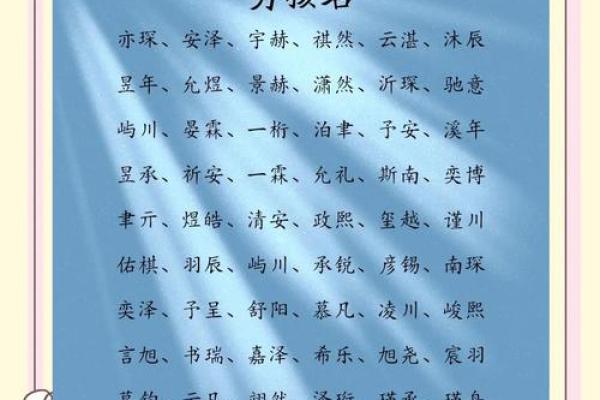 男孩名
亦琛、安泽、宇赫、祺然、云湛、沐辰
昱年、允煜、景赫、潇然、沂琛、驰意
屿川、晏霖、一桁、泊聿、予安、溪年
昱承、祈安、一霖、允礼、斯南、奕博
聿亓、煜皓、清安、政熙、玺越、谨川
佑棋、羽辰、屿川、承锐、彦锡、南琛
奕泽、予呈、舒阳、慕凡、凌川、峻熙
言旭、书瑞、嘉泽、希乐、旭尧、宸羽